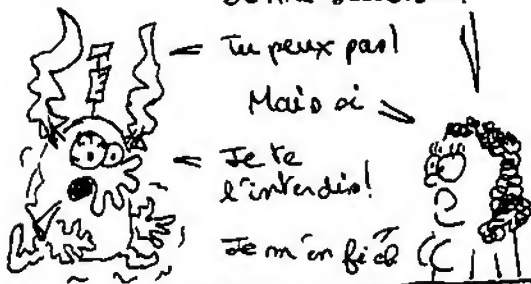 Tu peux pas!
Mais si
Je te
l'interdis!
Je m'en fich